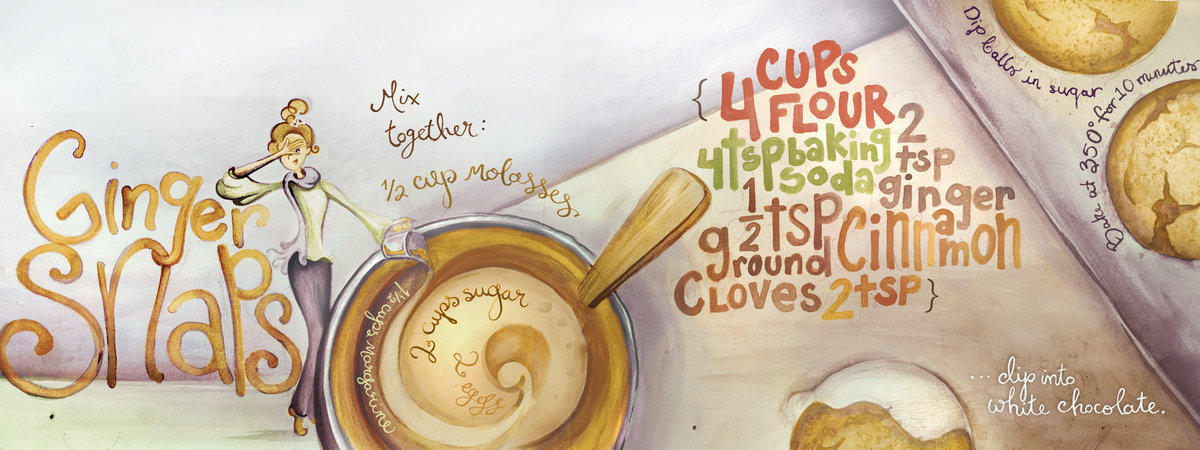 Ginger
Snaps
Mix
together:
1/2 cup molasses
1 1/2 cups margarine
2 cups sugar
2 eggs
{ 4 CUPS
FLOUR
4 tsp baking
soda
2
tsp
ginger
1/2 tsp
ground
CLOVES
Cinnamon
2 tsp }
Dip balls in sugar
Bake at 350° for 10 minutes
... dip into
white chocolate.